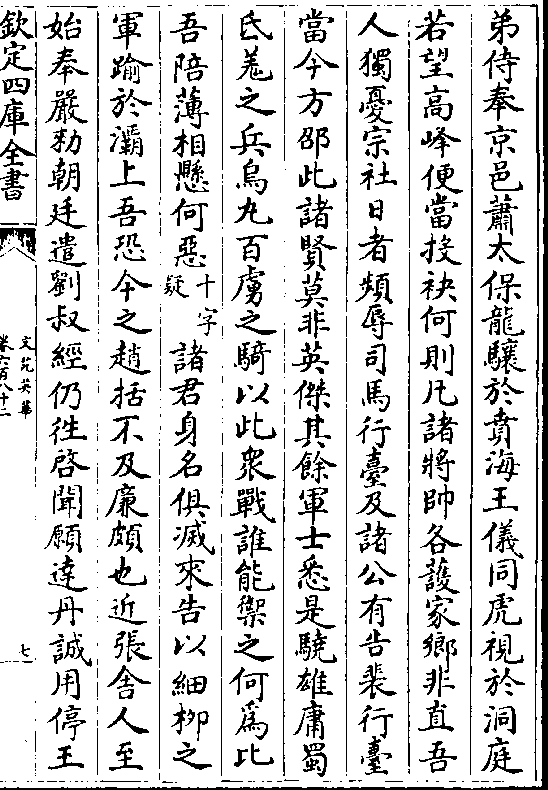 弟侍奉京邑蕭太保龍驤於賁海王儀同虎視於洞庭
若望高峰便當投袂何則凡諸將帥各護家鄉非直吾
人獨憂宗社日者頻辱司馬行臺及諸公有告裴行臺
當今方邵此諸賢莫非英傑其餘軍士悉是驍雄庸蜀
氐羗之兵烏丸百虜之騎以此衆戰誰能禦之何爲比
吾陪薄相懸何惡十字疑諸君身名俱滅來告以細柳之
軍踰於灞上吾恐今之趙括不及廉頗也近張舍人至
始奉嚴勑朝廷遣劉叔經仍徃啓聞願達丹誠用停王
欽定四庫全書
文苑英華
卷六百八十二
七